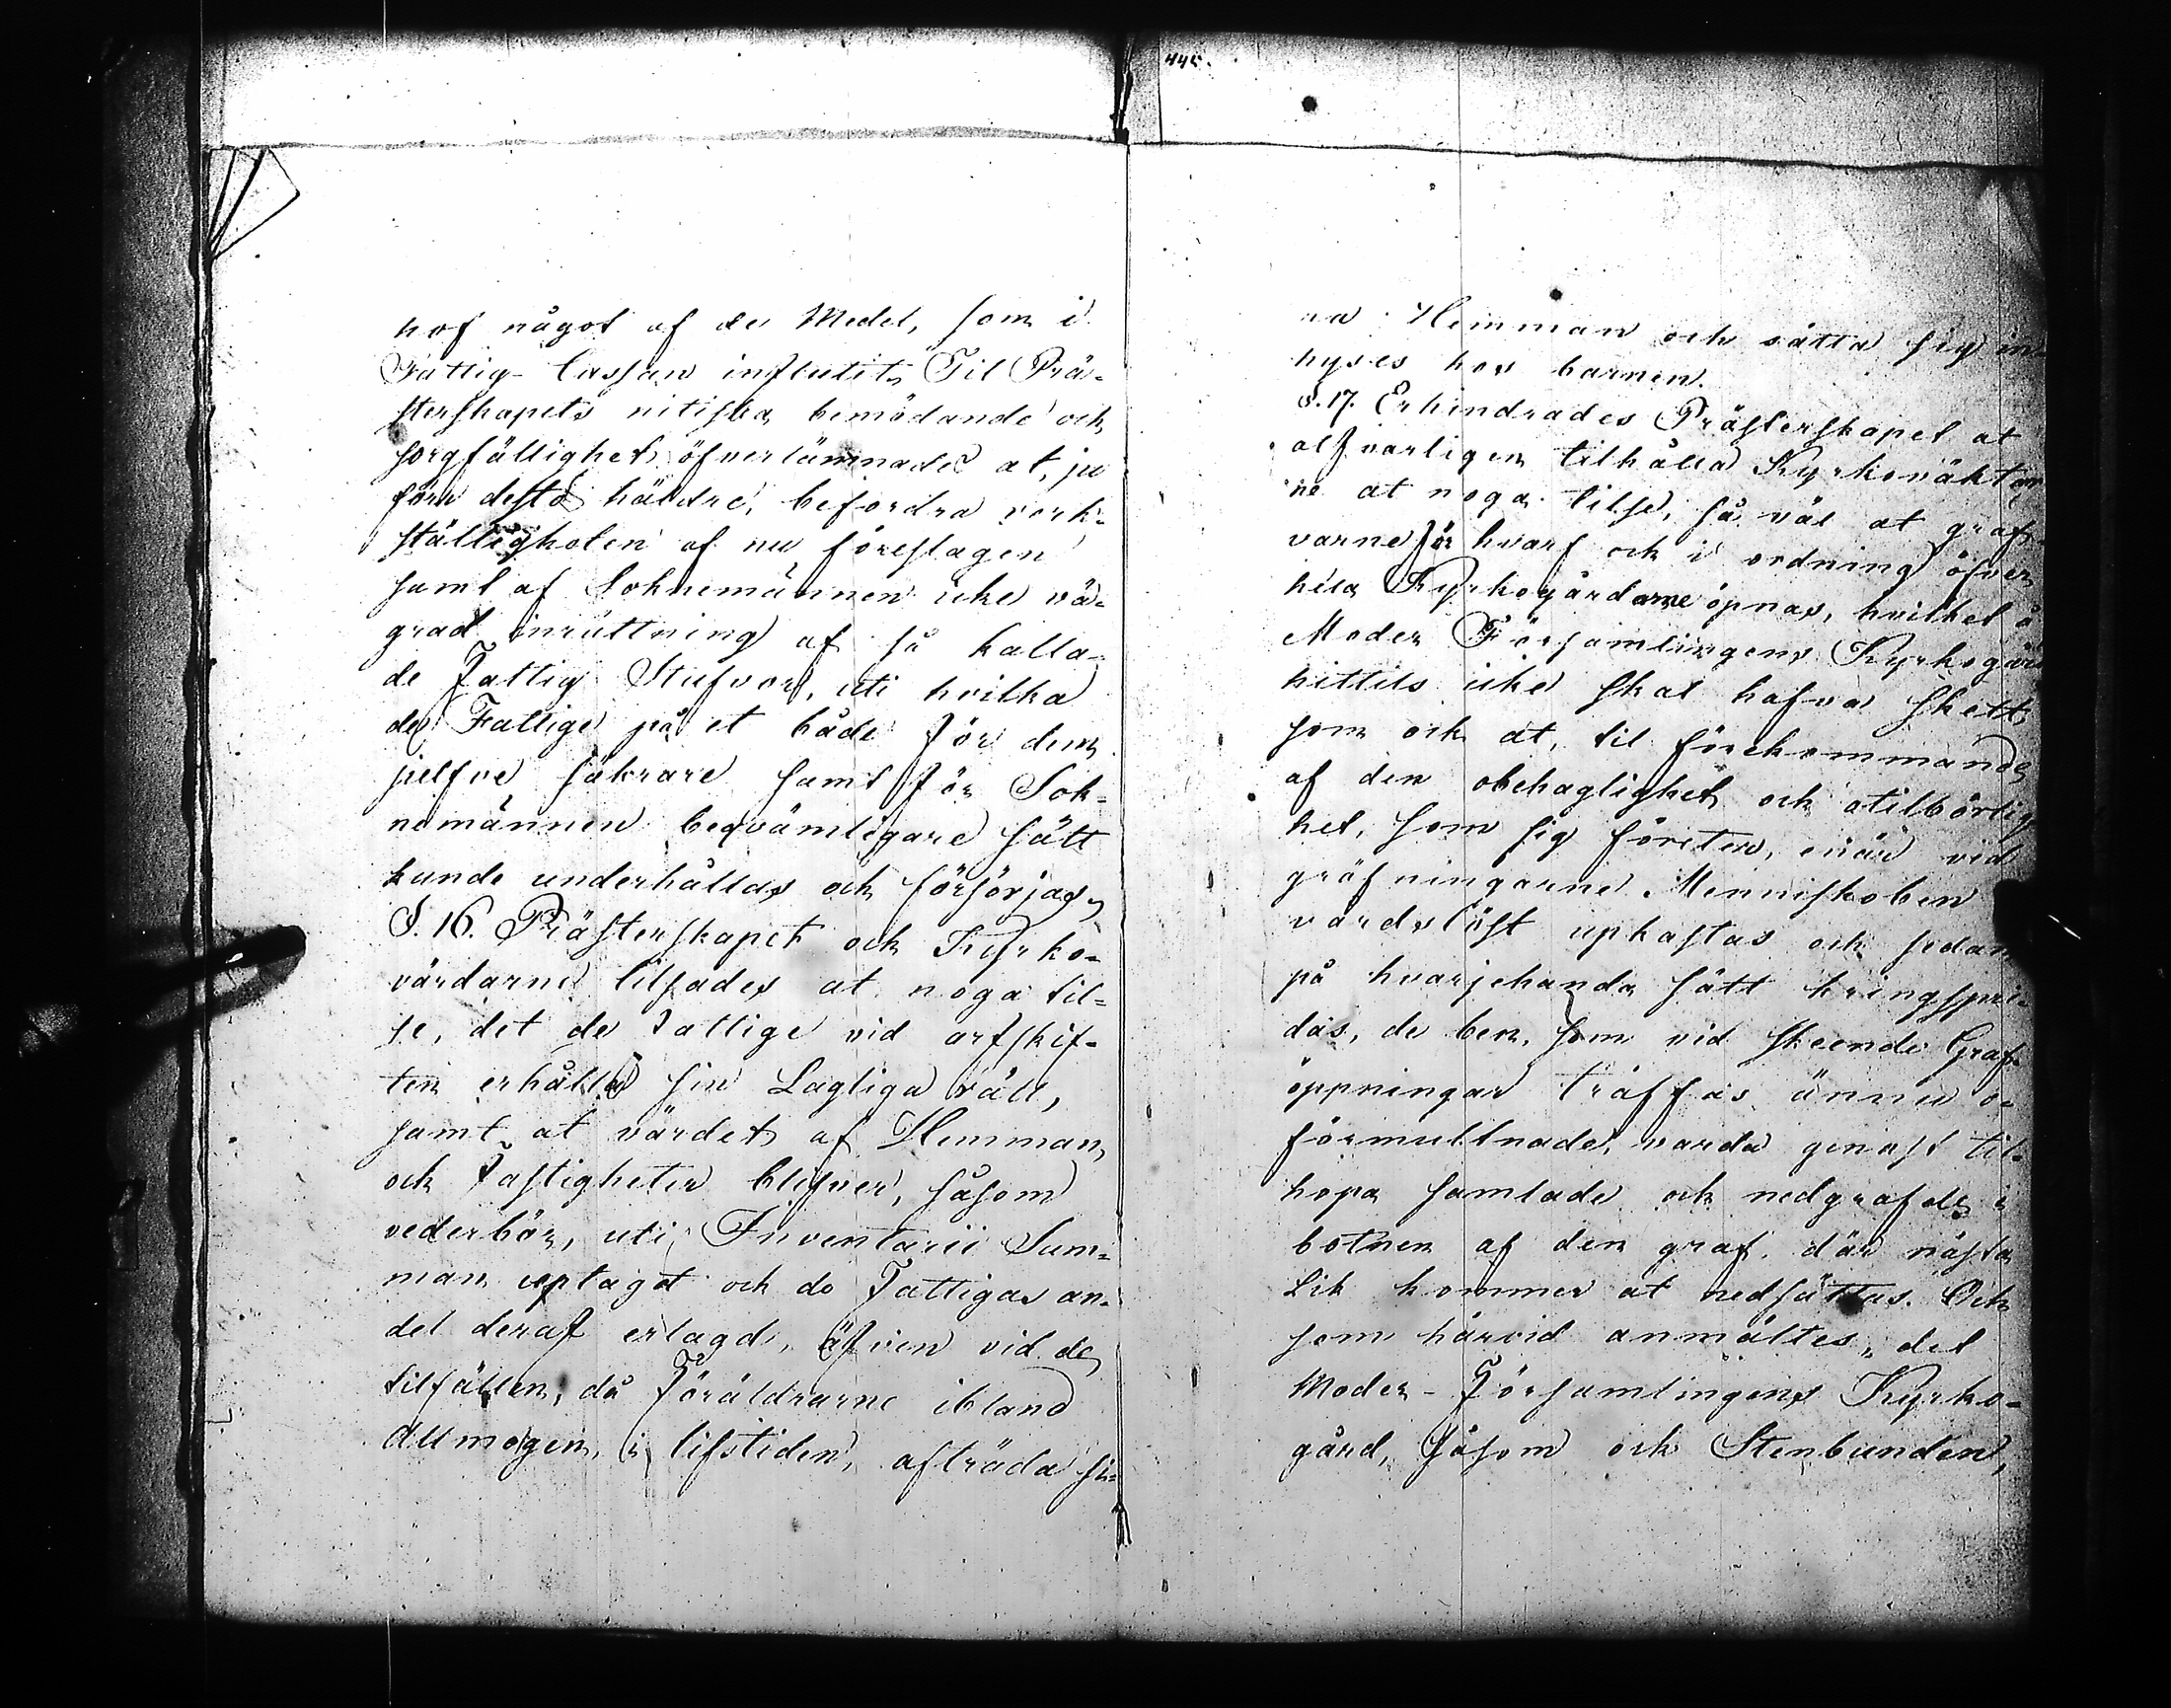 hof något af de Medel, som i
Fattig-Cassan influtit. Til Prä-
sterskapets nitiska bemödande och
sorgfällighet öfverlämnades at, ju
förr desto häldre, befordra verk-
ställigheten af nu föreslagen
samt af Soknemännen icke vä-
grad inrättning af så kalla-
de Fattig Stufvor, uti hvilka
de Fattige på et både för dem
sjelfve säkrare samt för Sok-
nemännen beqvämligare sätt
kunde underhållas och försörjas,
§. 16. Prästerskapet och Kyrko-
värdarne tilsades at noga til-
se, det de Fattige vid arfskif-
ten erhålla sin Lagliga rätt,
samt at värdet af Hemman
och Fastigheter blifver, såsom
vederbör, uti Inventarii Sum-
man uptaget och de Fattigas an-
del deraf erlagd, äfven vid de
tilfällen, då Föräldrarne ibland
Allmogen, i lifstiden, afträda si-
445.
na Hemman och sätta sig in-
hyses hos barnen.
§. 17. Erhindrades Prästerskapet at
alfvarligen tilhålla Kyrkoväktar
ne at noga tilse, så väl at graf-
varne för hvarf och i ordning öfver
hela Kyrkogårdarne öpnas, hvilket å
Moder Församlingens Kyrkogård
hittils icke skal hafva skett
som ock at, til förekommande
af den obehaglighet och otilbörlig
het, som sig företer, enär vid
gräfningarne Menniskoben
vårdslöst upkastas och sedan
på hvarjehanda sätt kringspri-
das, de ben, som vid skeende Graf-
öppningar träffas ännu o-
förmultnade, varda genast til-
hopa samlade och nedgrafde i
botnen af den graf, där nästa
Lik kommer at nedsättas. Och
som härvid anmältes, det
Moder-Församlingens Kyrko-
gård, såsom ock Stenbunden,